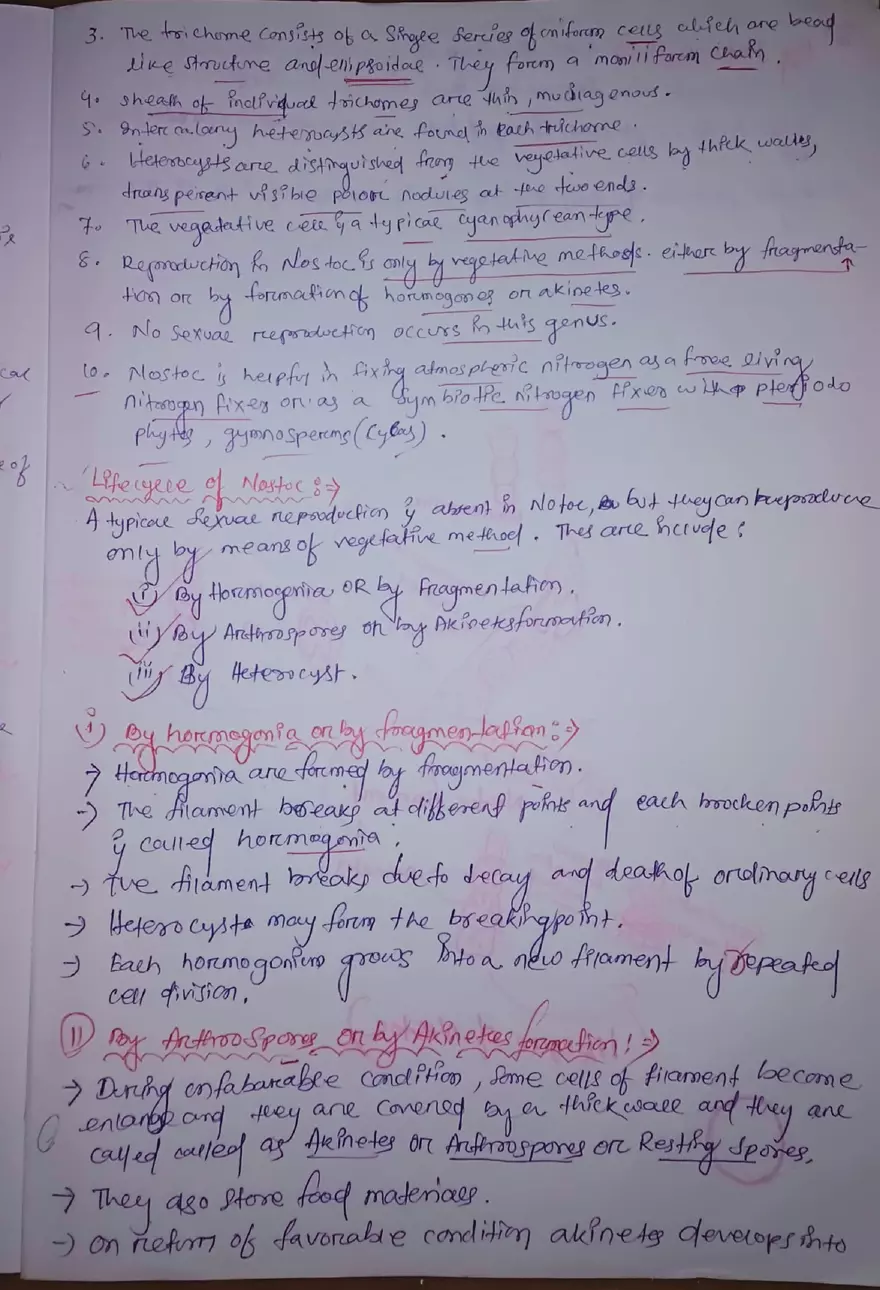 3. The trichome consists of a Single Sercies of uniform cells which are bead
like structure and ellipsoidae. They form a moniliform chain.
4. sheath of individual trichomes are thin, mucilagenous.
5. Intercalary heterocysts are found in each trichome.
6. Heterocysts are distinguished from the vegetative cells by thick walls,
transperent visible polar nodules at the two ends.
7. The vegetative cell is a typical cyanophycean type.
8. Reproduction in Nostoc is only by vegetative methods. either by fragmenta-
tion or by formation of hormogones or akinetes.
9. No sexual reproduction occurs in this genus.
10. Nostoc is helpful in fixing atmospheric nitrogen as a free living
nitrogen fixer or as a Symbiotic nitrogen fixer with pteriodo
phytes, gymnosperms (Cycas).
e of
Lifecycle of Nostoc :⇒
A typical Sexual reproduction is absent in Notoc, but they can reproduce
only by means of vegetative method. Thes are include :
(i) By Hormogonia OR by fragmentation.
(ii) By Arthrospores or by Akinetsformation.
(iii) By Heterocyst.
(i) By hormogonia or by fragmentation :⇒
→ Hormogonia are formed by fragmentation.
→ The filament breaks at different points and each brocken points
is called hormogonia.
→ The filament breaks due to decay and death of ordinary cells
→ Heterocysts may form the breaking point.
→ Each hormogonium grows into a new filament by repeated
cell division.
(II) By Arthrospores or by Akinetes formation ! ⇒
→ During unfabarable condition, some cells of filament become
enlarge and they are covered by a thick wall and they are
called called as Akinetes or Arthrospores or Resting Spores.
→ They also store food materials.
→ on return of favorable condition akinetes develops into